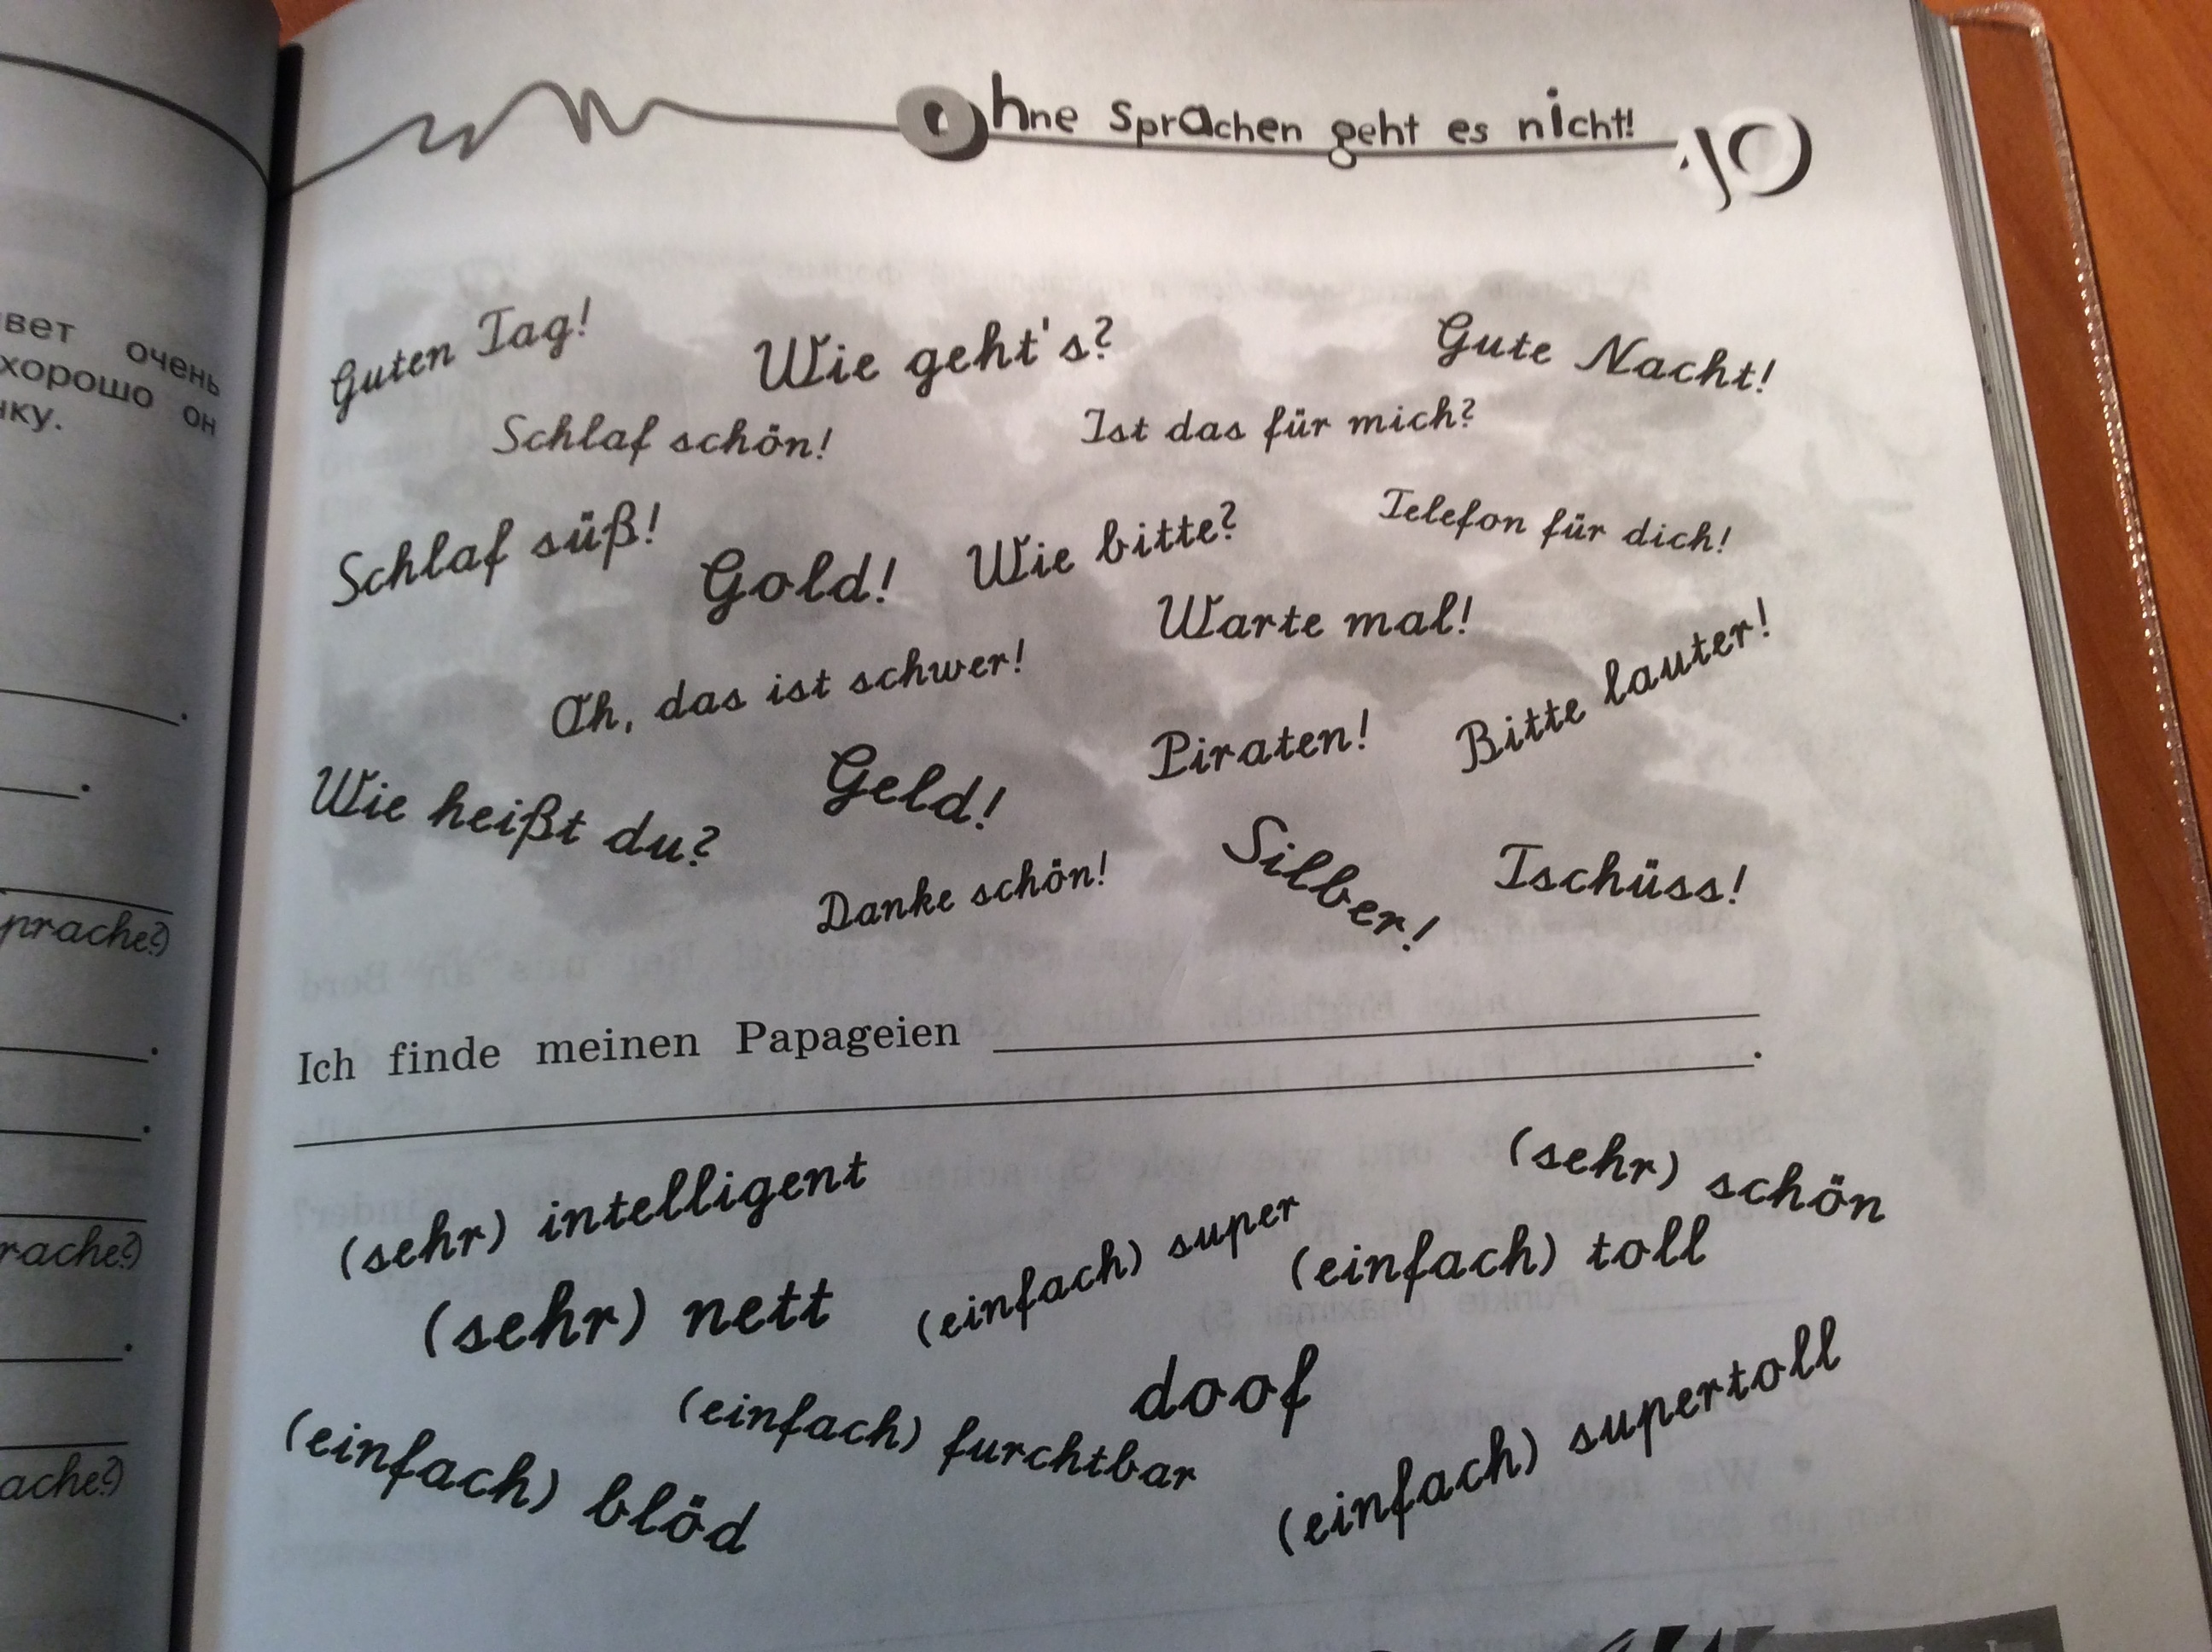 Ohne Sprachen geht es nicht! 10
вет очень
хорошо он
нку.
prache?)
rache?)
ache?)
Guten Tag! Wie geht's? Gute Nacht!
Schlaf schön! Ist das für mich?
Schlaf süß! Gold! Wie bitte? Telefon für dich!
Warte mal!
Oh, das ist schwer! Bitte lauter!
Wie heißt du? Geld! Piraten!
Danke schön! Silber! Tschüss!
Ich finde meinen Papageien
(sehr) intelligent (sehr) schön
(sehr) nett (einfach) super (einfach) toll
(einfach) blöd (einfach) furchtbar doof (einfach) supertoll